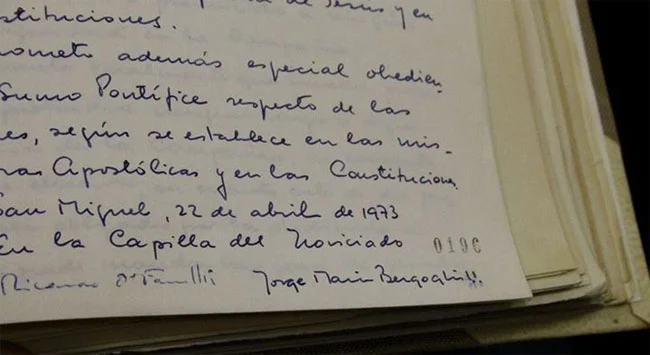 de Jesus y en
stituciones.
rometo además especial obedien
Sumo Pontífice respecto de las
es, según se establece en las mis-
ras Apostólicas y en las Constitucione
San Miguel, 22 de abril de 1973
En la Capilla del Noviciado 0196
Jorge Mario Bergoglio